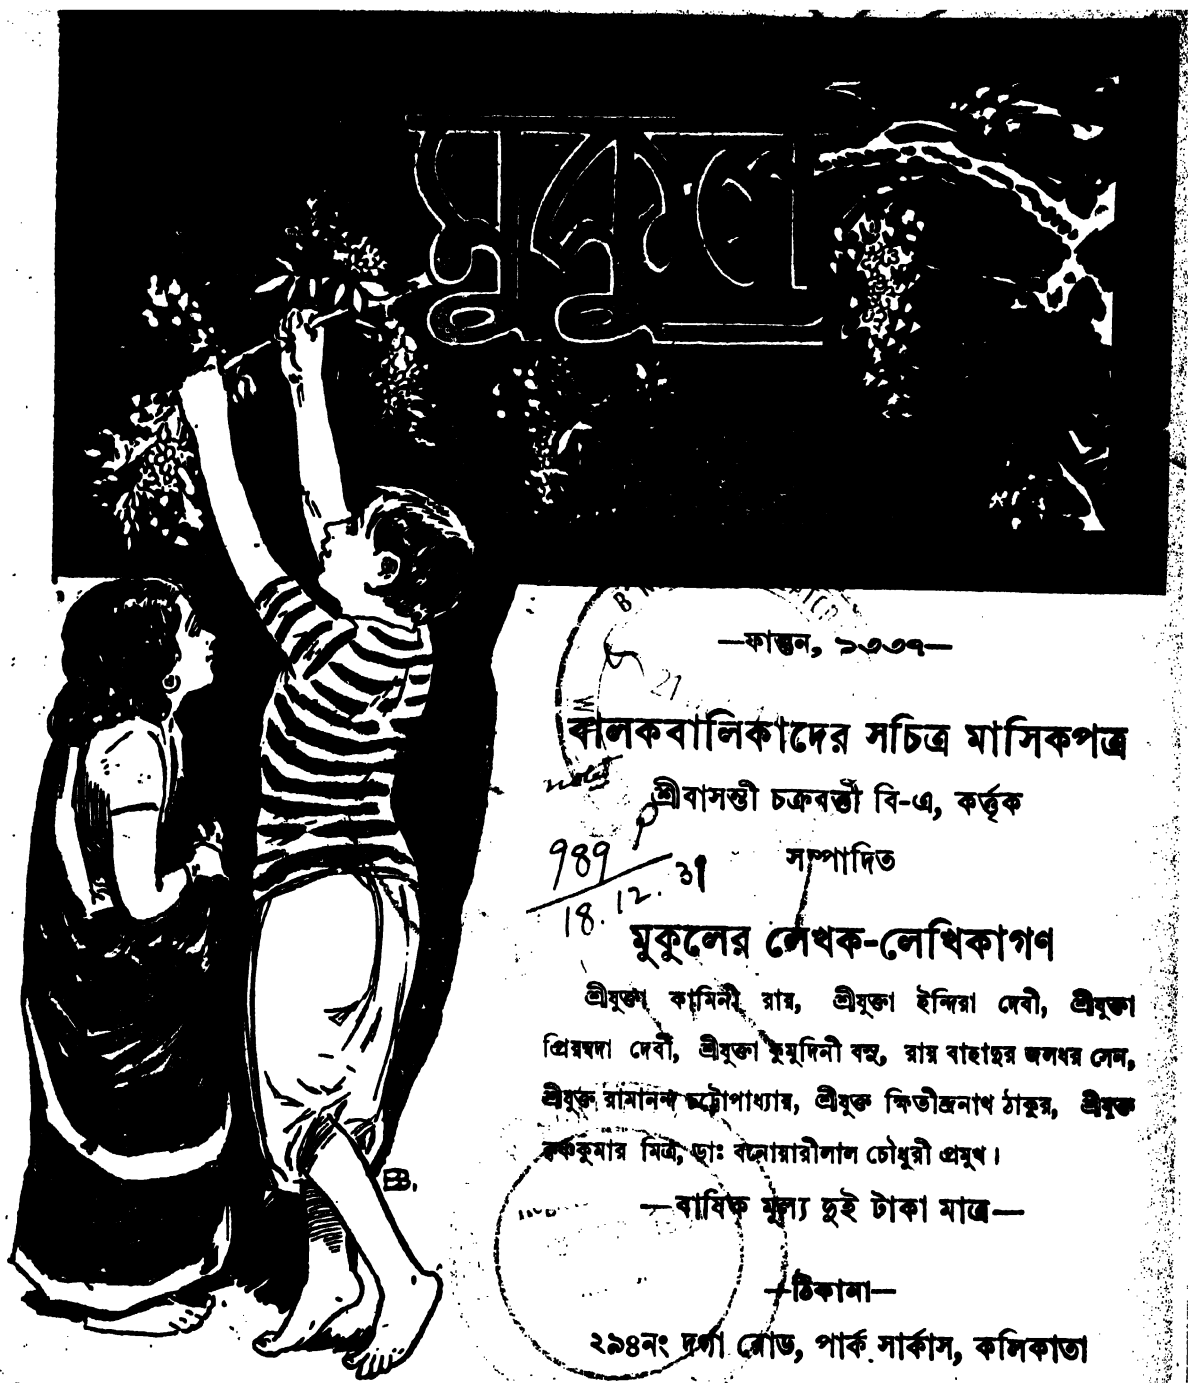 মুকুল
—ফাল্গুন, ১৩৩৭—
21
বালকবালিকাদের সচিত্র মাসিকপত্র
শ্রীবাসন্তী চক্রবর্ত্তী বি-এ, কর্ত্তৃক
সম্পাদিত
989
18.12.31
মুকুলের লেখক-লেখিকাগণ
শ্রীযুক্তা কামিনী রায়, শ্রীযুক্তা ইন্দিরা দেবী, শ্রীযুক্তা
প্রিয়ম্বদা দেবী, শ্রীযুক্তা কুমুদিনী বসু, রায় বাহাদুর জলধর সেন,
শ্রীযুক্ত রামানন্দ চট্টোপাধ্যায়, শ্রীযুক্ত ক্ষিতীন্দ্রনাথ ঠাকুর, শ্রীযুক্ত
কৃষ্ণকুমার মিত্র, ডাঃ বনোয়ারীলাল চৌধুরী প্রমুখ।
EB.
—বার্ষিক মূল্য দুই টাকা মাত্র—
—ঠিকানা—
২৯৪নং দর্গা রোড, পার্ক সার্কাস, কলিকাতা